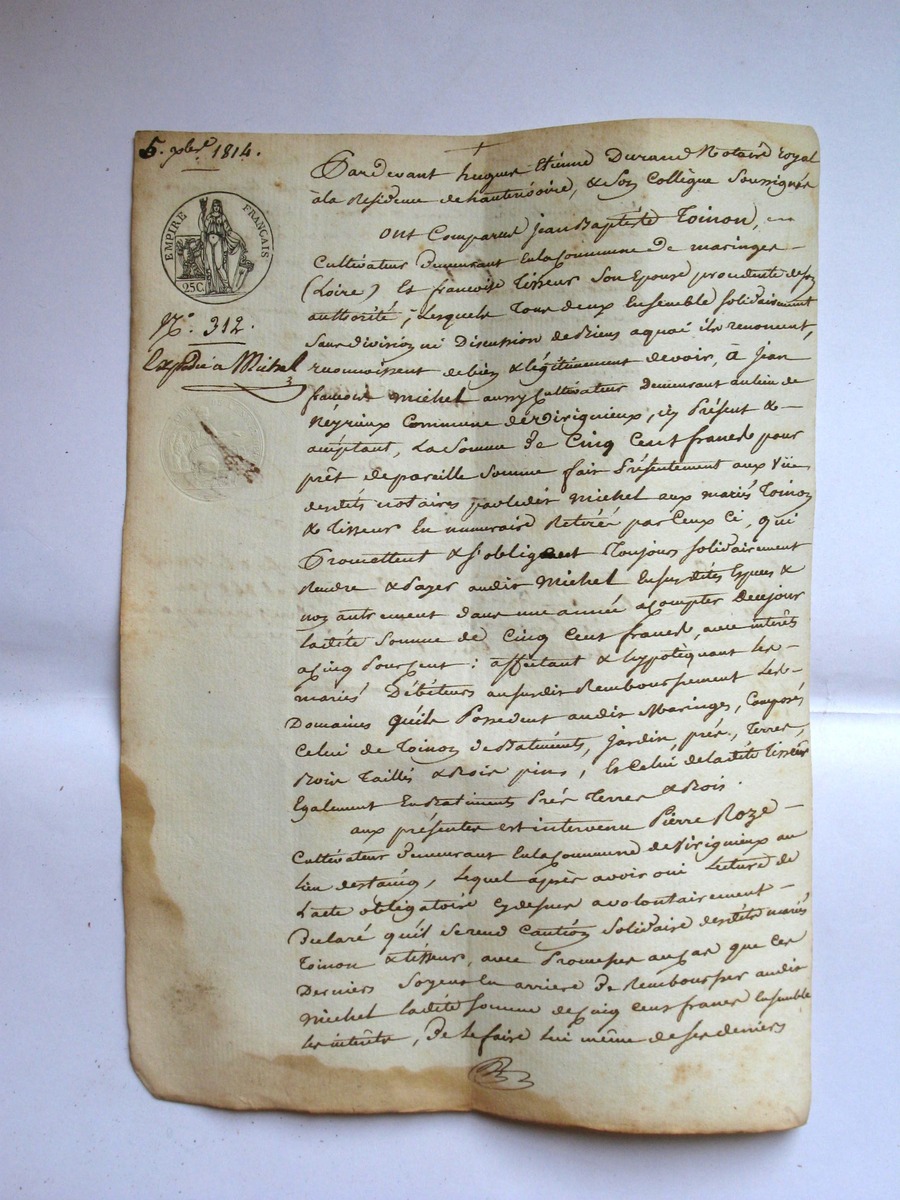 5. xbre 1814.
EMPIRE FRANÇAIS
25C.
N.º 312.
Expédié a Michel
Pardevant hugues Etienne Durand Notaire royal
à la Residence de hauterivoire, & Son Collègue Soussignés
ont Comparus Jean Baptiste Toinon,
Cultivateur demeurant en la Commune de maringes
(Loire) Et francoise Tisseur Son Epouse procedente de son
authorité, lesquels Tous deux Ensemble solidairement
Sans division ni Discussion de Biens a quoi ils renoncent,
reconnoissent debien & légitimement devoir, à Jean
francois Michel aussy Cultivateur Demeurant au lieu de
Néyrieux Commune de Virignieux, icy Présent &
acceptant, La Somme de Cinq Cent francs pour
prêt de pareille Somme fait Présentement aux vüe
desdits notaires par ledit Michel aux mariés Toinon
& Tisseur En numeraire Retirée par Ceux Ci, qui
Promettent & S'obligent Toujours Solidairement
Rendre & Payer audit Michel En susdites Especes &
non autrement dans une année a Compter de ce jour
ladite Somme de Cinq Cent francs, avec interêts
a Cinq pour Cent : affectant & hyppotequant les
mariés Débiteurs au susdit Remboursement les
Domaines qu'ils Possedent audit Maringes, Composés
Celui de Toinon de Batiments, Jardin, prés, Terres,
Bois Taillis & Bois pins, Et Celui de ladite Tisseur
Egalement En Batiments Prés Terres & Bois.
aux présentes est intervenu Pierre Roze
Cultivateur demeurant En la Commune de Virignieux au
lieu , lequel après avoir oui Lecture de
L'acte obligatoire Cydessus a volontairement
Declaré qu'il Se rend Caution Solidaire desdits mariés
Toinon & tisseur, avec Promesse au Cas que Ces
Derniers Soyent En arriere de Rembourser audit
Michel ladite Somme de Cinq Cent francs Ensemble
les intérêts, de le faire Lui même de ses deniers